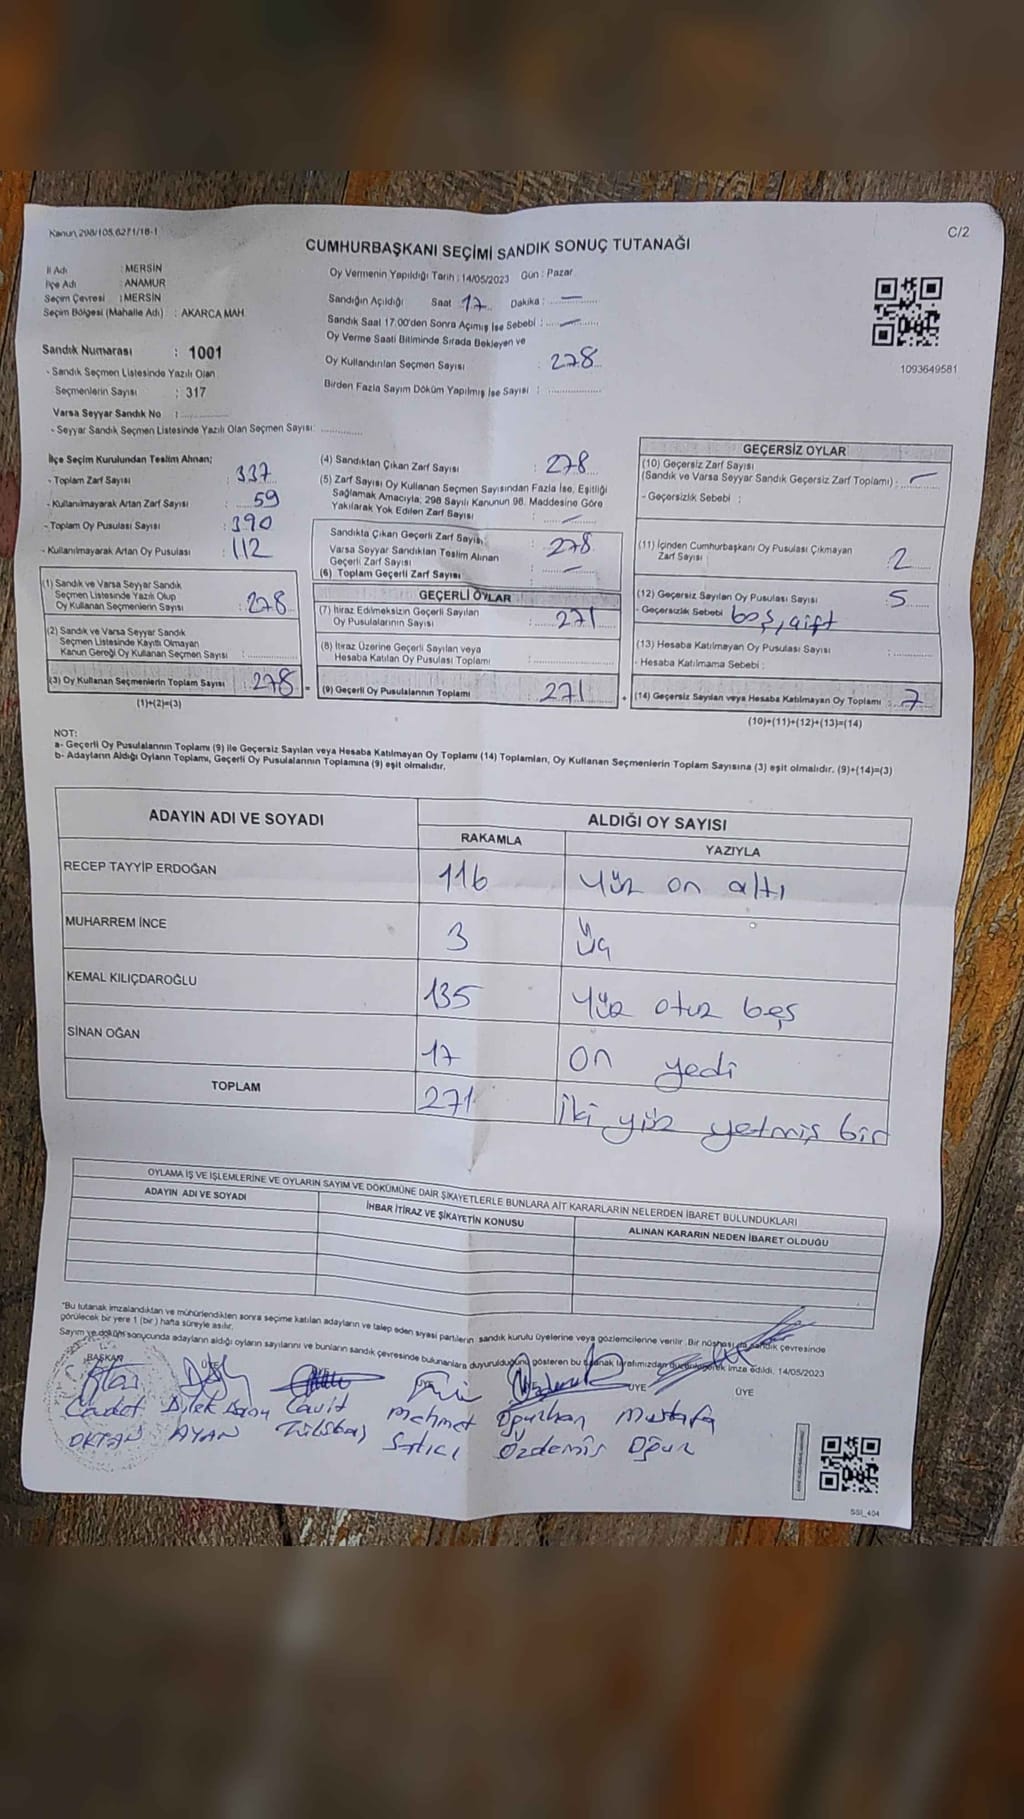 Kanun 298/105,6271/18-1
C/2
CUMHURBAŞKANI SEÇİMİ SANDIK SONUÇ TUTANAĞI
İl Adı : MERSİN
İlçe Adı : ANAMUR
Seçim Çevresi : MERSİN
Seçim Bölgesi (Mahalle Adı) : AKARCA MAH.
Oy Vermenin Yapıldığı Tarih : 14/05/2023 Gün : Pazar
Sandığın Açıldığı Saat 17 Dakika : —
Sandık Saat 17:00'den Sonra Açımış İse Sebebi : —
Oy Verme Saati Bitiminde Sırada Bekleyen ve
Oy Kullandırılan Seçmen Sayısı : 278
Birden Fazla Sayım Döküm Yapılmış İse Sayısı :
1093649581
Sandık Numarası : 1001
- Sandık Seçmen Listesinde Yazılı Olan
Seçmenlerin Sayısı : 317
Varsa Seyyar Sandık No :
- Seyyar Sandık Seçmen Listesinde Yazılı Olan Seçmen Sayısı:
İlçe Seçim Kurulundan Teslim Alınan;
- Toplam Zarf Sayısı : 337
- Kullanılmayarak Artan Zarf Sayısı : 59
- Toplam Oy Pusulası Sayısı : 390
- Kullanılmayarak Artan Oy Pusulası : 112
(1) Sandık ve Varsa Seyyar Sandık
Seçmen Listesinde Yazılı Olup
Oy Kullanan Seçmenlerin Sayısı : 278
(2) Sandık ve Varsa Seyyar Sandık
Seçmen Listesinde Kayıtlı Olmayan
Kanun Gereği Oy Kullanan Seçmen Sayısı :
(3) Oy Kullanan Seçmenlerin Toplam Sayısı 278
(1)+(2)=(3)
(4) Sandıktan Çıkan Zarf Sayısı : 278
(5) Zarf Sayısı Oy Kullanan Seçmen Sayısından Fazla İse, Eşitliği
Sağlamak Amacıyla; 298 Sayılı Kanunun 98. Maddesine Göre
Yakılarak Yok Edilen Zarf Sayısı : —
Sandıkta Çıkan Geçerli Zarf Sayısı : 278
Varsa Seyyar Sandıktan Teslim Alınan
Geçerli Zarf Sayısı : —
(6) Toplam Geçerli Zarf Sayısı
GEÇERLİ OYLAR
(7) İtiraz Edilmeksizin Geçerli Sayılan
Oy Pusulalarının Sayısı : 271
(8) İtiraz Üzerine Geçerli Sayılan veya
Hesaba Katılan Oy Pusulası Toplamı :
(9) Geçerli Oy Pusulalarının Toplamı 271
GEÇERSİZ OYLAR
(10) Geçersiz Zarf Sayısı
(Sandık ve Varsa Seyyar Sandık Geçersiz Zarf Toplamı) : —
- Geçersizlik Sebebi :
(11) İçinden Cumhurbaşkanı Oy Pusulası Çıkmayan
Zarf Sayısı 2
(12) Geçersiz Sayılan Oy Pusulası Sayısı : 5
- Geçersizlik Sebebi boş, çift
(13) Hesaba Katılmayan Oy Pusulası Sayısı :
- Hesaba Katılmama Sebebi :
(14) Geçersiz Sayılan veya Hesaba Katılmayan Oy Toplamı : 7
(10)+(11)+(12)+(13)=(14)
NOT:
a- Geçerli Oy Pusulalarının Toplamı (9) ile Geçersiz Sayılan veya Hesaba Katılmayan Oy Toplamı (14) Toplamları, Oy Kullanan Seçmenlerin Toplam Sayısına (3) eşit olmalıdır. (9)+(14)=(3)
b- Adayların Aldığı Oyların Toplamı, Geçerli Oy Pusulalarının Toplamına (9) eşit olmalıdır.
ADAYIN ADI VE SOYADI ALDIĞI OY SAYISI
RAKAMLA YAZIYLA
RECEP TAYYİP ERDOĞAN 116 Yüz on altı
MUHARREM İNCE 3 Üç
KEMAL KILIÇDAROĞLU 135 Yüz otuz beş
SİNAN OĞAN 17 on yedi
TOPLAM 271 İki yüz yetmiş bir
OYLAMA İŞ VE İŞLEMLERİNE VE OYLARIN SAYIM VE DÖKÜMÜNE DAİR ŞİKAYETLERLE BUNLARA AİT KARARLARIN NELERDEN İBARET BULUNDUKLARI
ADAYIN ADI VE SOYADI İHBAR İTİRAZ VE ŞİKAYETİN KONUSU ALINAN KARARIN NEDEN İBARET OLDUĞU
"Bu tutanak imzalandıktan ve mühürlendikten sonra seçime katılan adayların ve talep eden siyasi partilerin sandık kurulu üyelerine veya gözlemcilerine verilir. Bir nüshası da sandık çevresinde
görülecek bir yere 1 (bir) hafta süreyle asılır.
Sayım ve döküm sonucunda adayların aldığı oyların sayılarını ve bunların sandık çevresinde bulunanlara duyurulduğunu gösteren bu tutanak tarafımızdan düzenlenerek imza edildi. 14/05/2023
BAŞKAN ÜYE ÜYE ÜYE ÜYE ÜYE ÜYE
Cavit Mehmet Oğuzhan Mustafa
OKTAN AYAN Satıcı Özdemir Oğuz
SSI_404